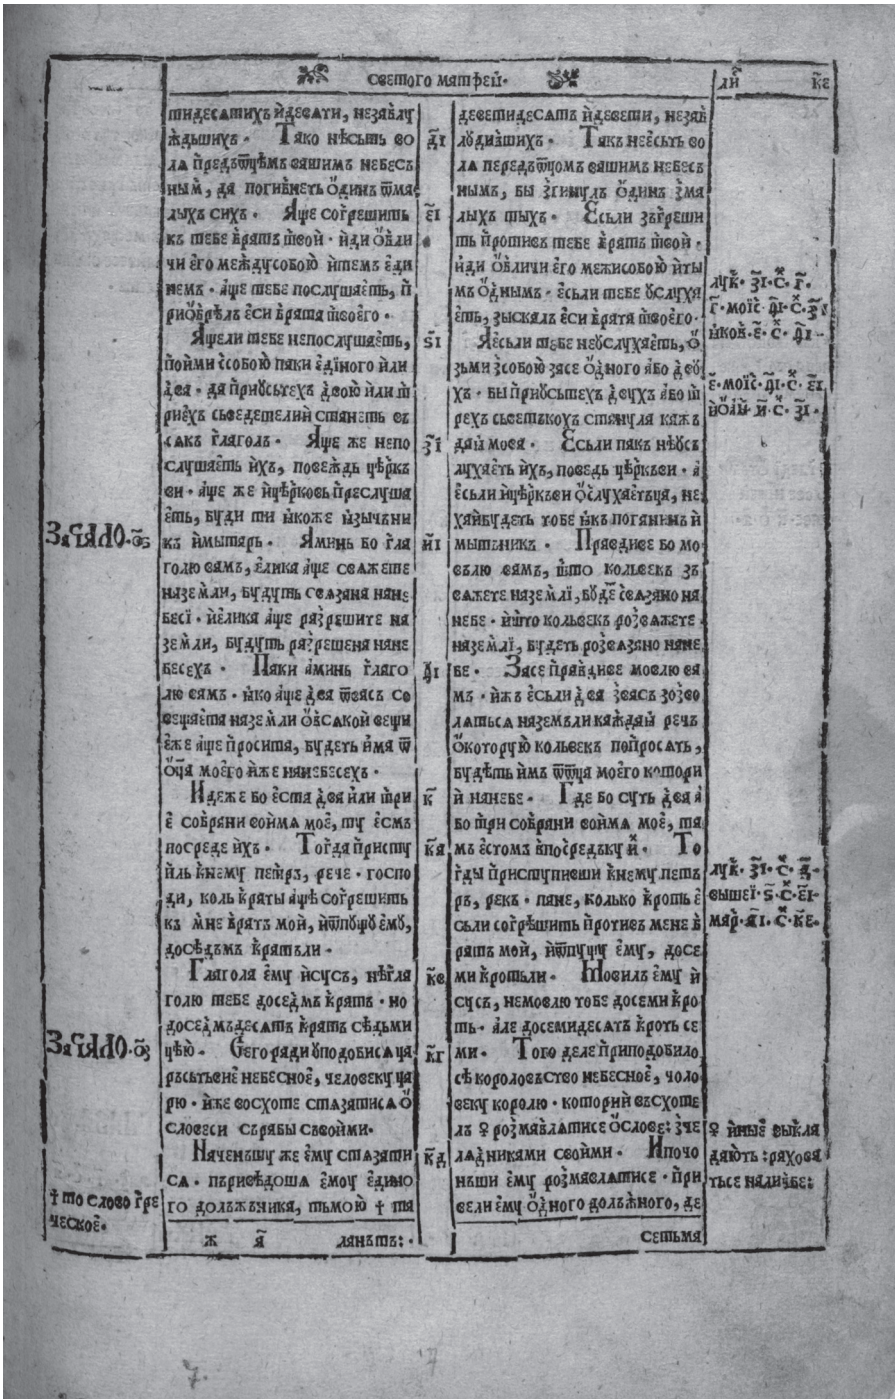 светого матфеӥ· ли҃ к҃е
тидесѧтихъ и҆десѧти, незаблу
ждьшихъ · Тако нѣсьть во
лѧ предъѿцѣмъ вашимъ небесъ
нымъ, да погибнеть о҆динъ ѿма
лыхъ сихъ · Аще согрешить
къ тебе братъ твой · иди о҆бли
чи его междусобою и҆темъ еди
немъ · аще тебе послушаеть, п
риобрѣлъ еси брата твоего ·
Ащели тебе непослушаеть,
пойми ссобою паки единого или
два · да приꙋстехъ двою или т
риехъ сьведетелий станеть в
сѧкъ глаголъ · Аще же непо
слушаеть ихъ, повеждь церкъ
ви · аще же и҆церковь преслуша
еть, буди ти ꙗкоже ꙗзычъни
къ и҆мытарь · Аминь бо гла
голю вамъ, елика аще свѧжете
наземли, будуть свѧзана нане
беси · и҆елика аще разрешите на
земли, будуть разрешена нане
бесехъ · Паки аминь глаго
лю вамъ · ꙗко аще два ѿвасъ со
вещаета наземли о҆всѧкой вещи
еже аще просита, будеть има ѿ
о҆ца моего иже нанебесехъ ·
Идеже бо еста два или три
е собрани воимѧ мое, ту есмъ
посреде ихъ · Тогда присту
пль кнему петръ, рече · госпо
ди, коль краты аще согрешить
къ мне братъ мой, и҆ѿпущу ему,
доседьмъ кратъли ·
Глагола ему исусъ, неглa
голю тебе доседмъ кратъ · но
доседмъдесѧтъ кратъ сѣдьми
цею · Сего ради ꙋподобисѧ ца
рьсътьвие небесное, человеку ца
рю · иже восхоте стѧзатисѧ о҆
словеси сърабы съвоими ·
Наченъшу же ему стѧзати
сѧ · пъриведоша емоу едино
го долъжъника, тьмою † та
ж а҃ ланътъ: ·
д҃і
е҃і
ѕ҃і
з҃і
и҃і
ѳ҃і
к҃
к҃а
к҃в
к҃г
к҃д
деветидесѧтъ и҆девети, незаб
лудившихъ · Такъ неесьть во
лѧ передъѿцомъ вашимъ небесь
нымъ, бы згинулъ о҆динъ зма
лыхъ тыхъ · Есьли зъгреши
ть противъ тебе братъ твой ·
иди о҆бличи его межисобою и҆ты
мъ о҆днымъ · есьли тебе ꙋслуха
еть, зыскалъ еси брата твоего ·
Аесьли тебе неꙋслухаеть, о҆
зьми зсобою засе о҆дного або дву
хъ · бы приꙋстехъ двухъ або т
рехъ сьветъковъ станула каж
даꙗ мова · Есьли пакъ неꙋс
лухаеть ихъ, поведь церкъви · а
есьли и҆церкъви о҆слухаетьца, не
хайбудеть тобе ꙗкъ поганинъ и҆
мытьникъ · Правдиве бо мо
вьлю вамъ, што кольвекъ зъ
вѧжете наземлі, буде свѧзано на
небе · и҆што кольвекъ розвѧжете
наземлі, будеть розвѧзано нане
бе · Засе правдиве мовлю ва
мъ · ижъ есьли два звасъ зозво
лѧтьсѧ наземъли каждаꙗ речъ
о҆которую кольвекъ попросѧть,
будеть имъ ѿѿца моего котори
й нанебе · Где бо суть два а
бо три собрани воимѧ мое, та
мъ естомъ впосредъку и҆х · То
гды приступивши кнему петъ
ръ, рекъ · пане, колько кроть е
сьли согрешить противъ мене б
ратъ мой, и҆ѿпущу ему, досе
ми кротьли · Мовилъ ему и
сусъ, немовлю тобе досеми кро
ть · але досемидесѧть кроть се
ми · Того деле приподобило
се королевъство небесное, чоло
веку королю · который въсхоте
лъ ♀ розмавлѧтисе о҆слове: зче
лѧдниками своими · Ипочо
нъши ему розмавлѧтисе · при
вели ему о҆дного должного, де
сетьма
Зачало·о҃ѕ
Зачало·о҃з
† то слово гре
ческое·
лук· з҃і· с· г҃·
г҃·моіс· ѳ҃і·с· з҃і
ꙗков·е҃·с· ѳ҃і·
е҃·моіс·ѳ҃і·с· е҃і
и҆о҆ан· и҃·с· з҃і·
лук· з҃і·с· д҃·
вышеі·ѕ҃·с·е҃і·
мар·а҃і·с·к҃е·
♀ иные выкла
дають: раховa
тьсе наличбе:
7. 7